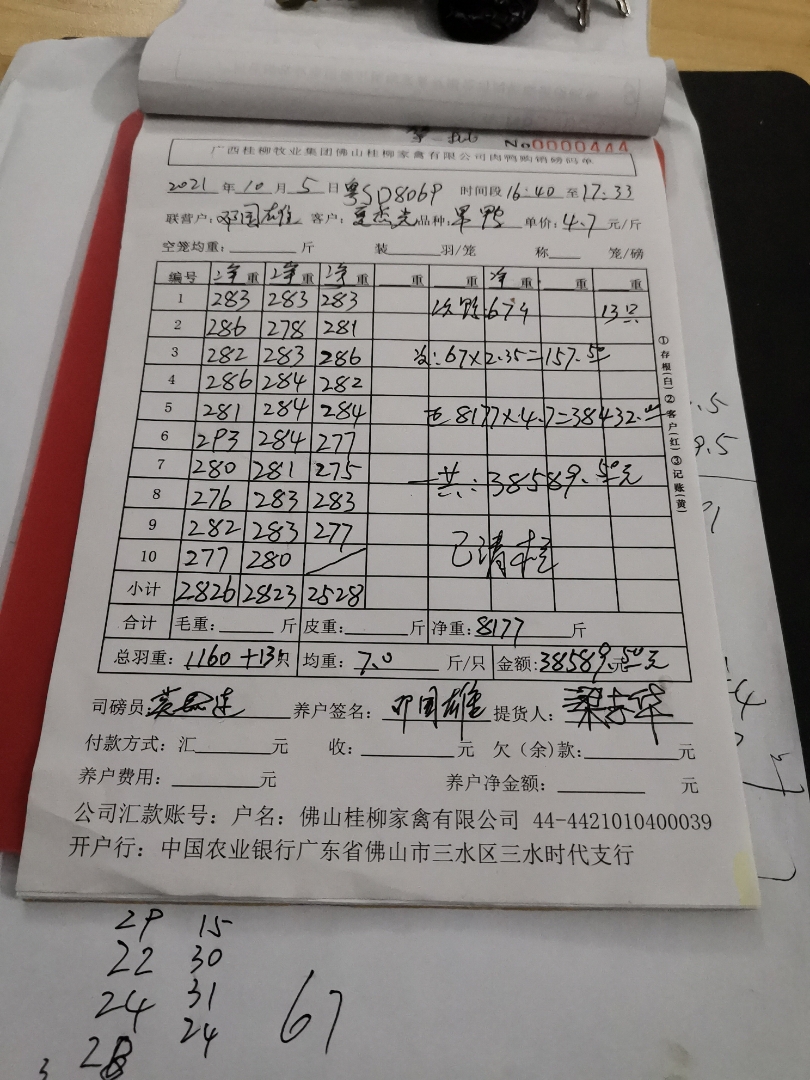 No0000444
广西桂柳牧业集团佛山桂柳家禽有限公司肉鸭购销磅码单
2021年10月5日 粤SD8069 时间段16:40至17:33
联营户:邓国雄 客户:夏杰光 品种: 单价:4.7元/斤
空笼均重:斤 装羽/笼 称笼/磅
编号 净重 净重 净重 重 重 净重 重 重
1 283 283 283 次鸭 67斤 13只
2 286 278 281
3 282 283 286 次:67×2.35=157.5
4 286 284 282
5 281 284 284 8177×4.7=38432.00
6 293 284 277
7 280 281 275 一共:38589.50元
8 276 283 283
9 282 283 277
10 277 280 / 已清
小计 2826 2823 2528
合计 毛重:斤 皮重:斤 净重:8177斤
总羽重:1160+13只 均重:7.0斤/只 金额:38589.50元
司磅员: 养户签名:邓国雄 提货人:梁志华
付款方式:汇元 收:元 欠(余)款:元
养户费用:元 养户净金额:元
公司汇款账号:户名:佛山桂柳家禽有限公司 44-4421010400039
开户行:中国农业银行广东省佛山市三水区三水时代支行
①存根(白)②客户(红)③记账(黄)
29 15
22 30
24 31
28 24
67